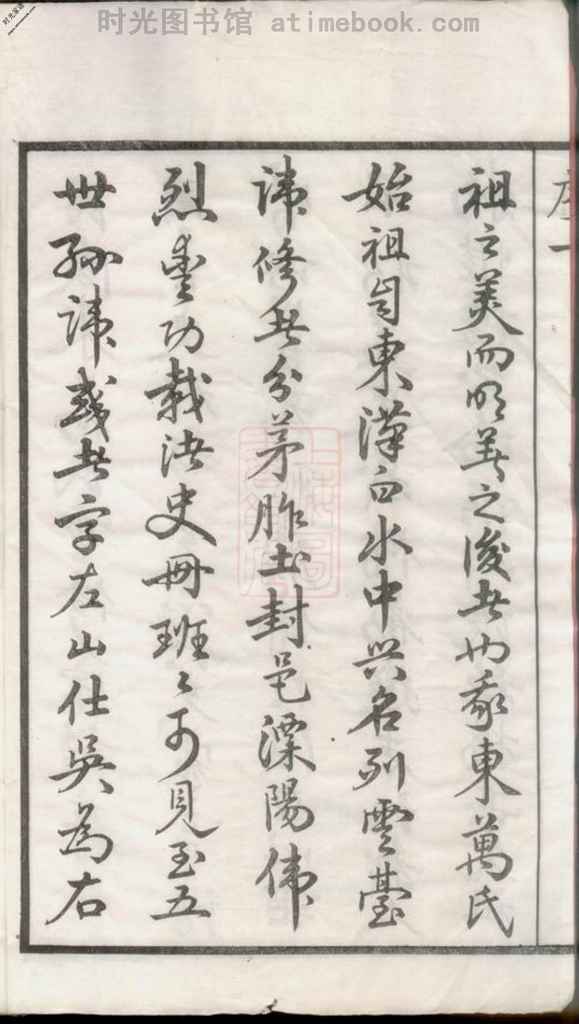 时光图书馆 atimebook.com
祖之美而明著之後者也我東萬氏
始祖自東漢白水中興名列雲臺
諱修者分茅胙土封邑溧陽偉
烈豐功載諸史冊班〻可見至五
世孫諱彧者字左山仕吳為右